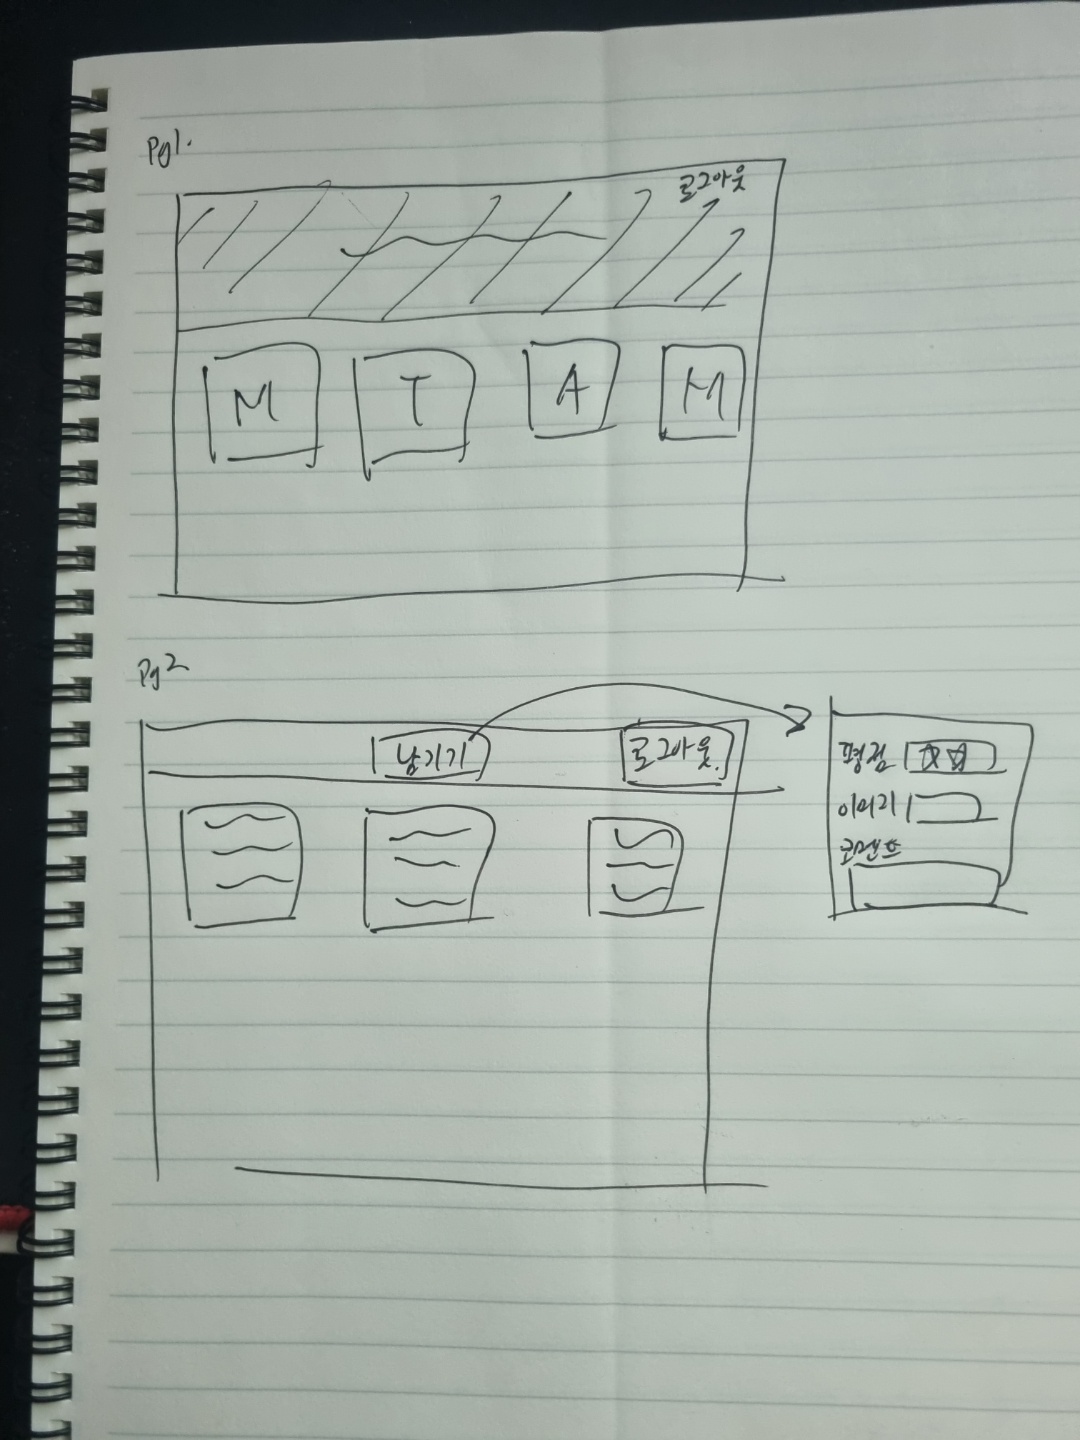 Pg1.
로그아웃
M T A M
Pg2
남기기 로그아웃.
평점
코멘트